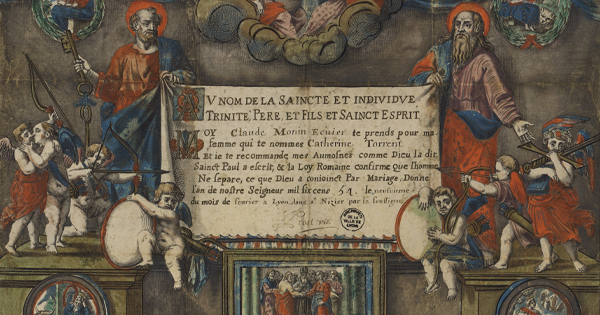 AV NOM DE LA SAINCTE ET INDIVIDVE
TRINITE PERE, ET FILS ET SAINCT ESPRIT.
MOY Claude Monin Ecuier te prends pour ma
femme qui te nommes Catherine Torrent
Et ie te recommande mes Aumosnes comme Dieu la dit
Sainct Paul a escrit, & la Loy Romaine confirme que l'homme
Ne separe, ce que Dieu a conioinct Par Mariage, Donné
l'an de nostre Seigneur mil six cens 54. le neufiesme
du mois de feurier a Lyon dans St Nizier par le soussigne
DE LA VILLE
DE LYON